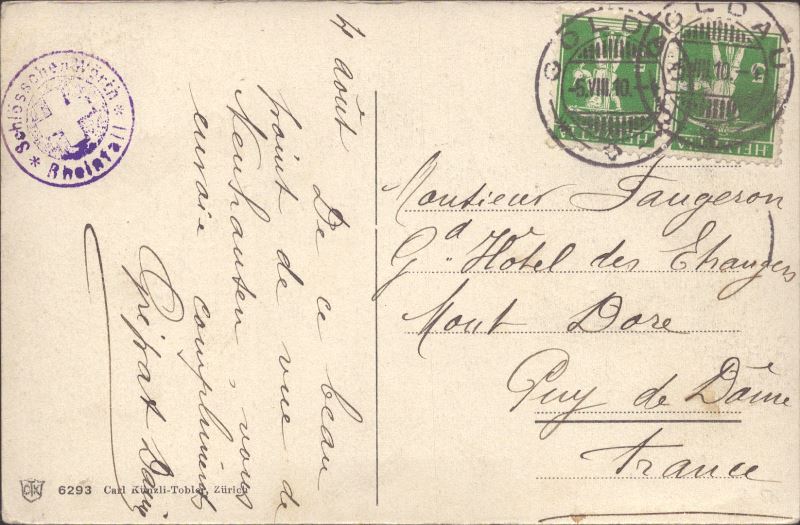 4 août
De ce beau
point de vue de
Neuhausen, vous
envoie compliment
Schlösschen Wörth * Rheinfall *
GOLDAU
-5.VIII.10.-
GOLDAU
-5.VIII.10.-
HELVETIA
HELVETIA
Monsieur Faugeron
Gd Hôtel des Etrangers
Mont Dore
Puy de Dôme
France
CKT 6293 Carl Künzli-Tobler, Zürich